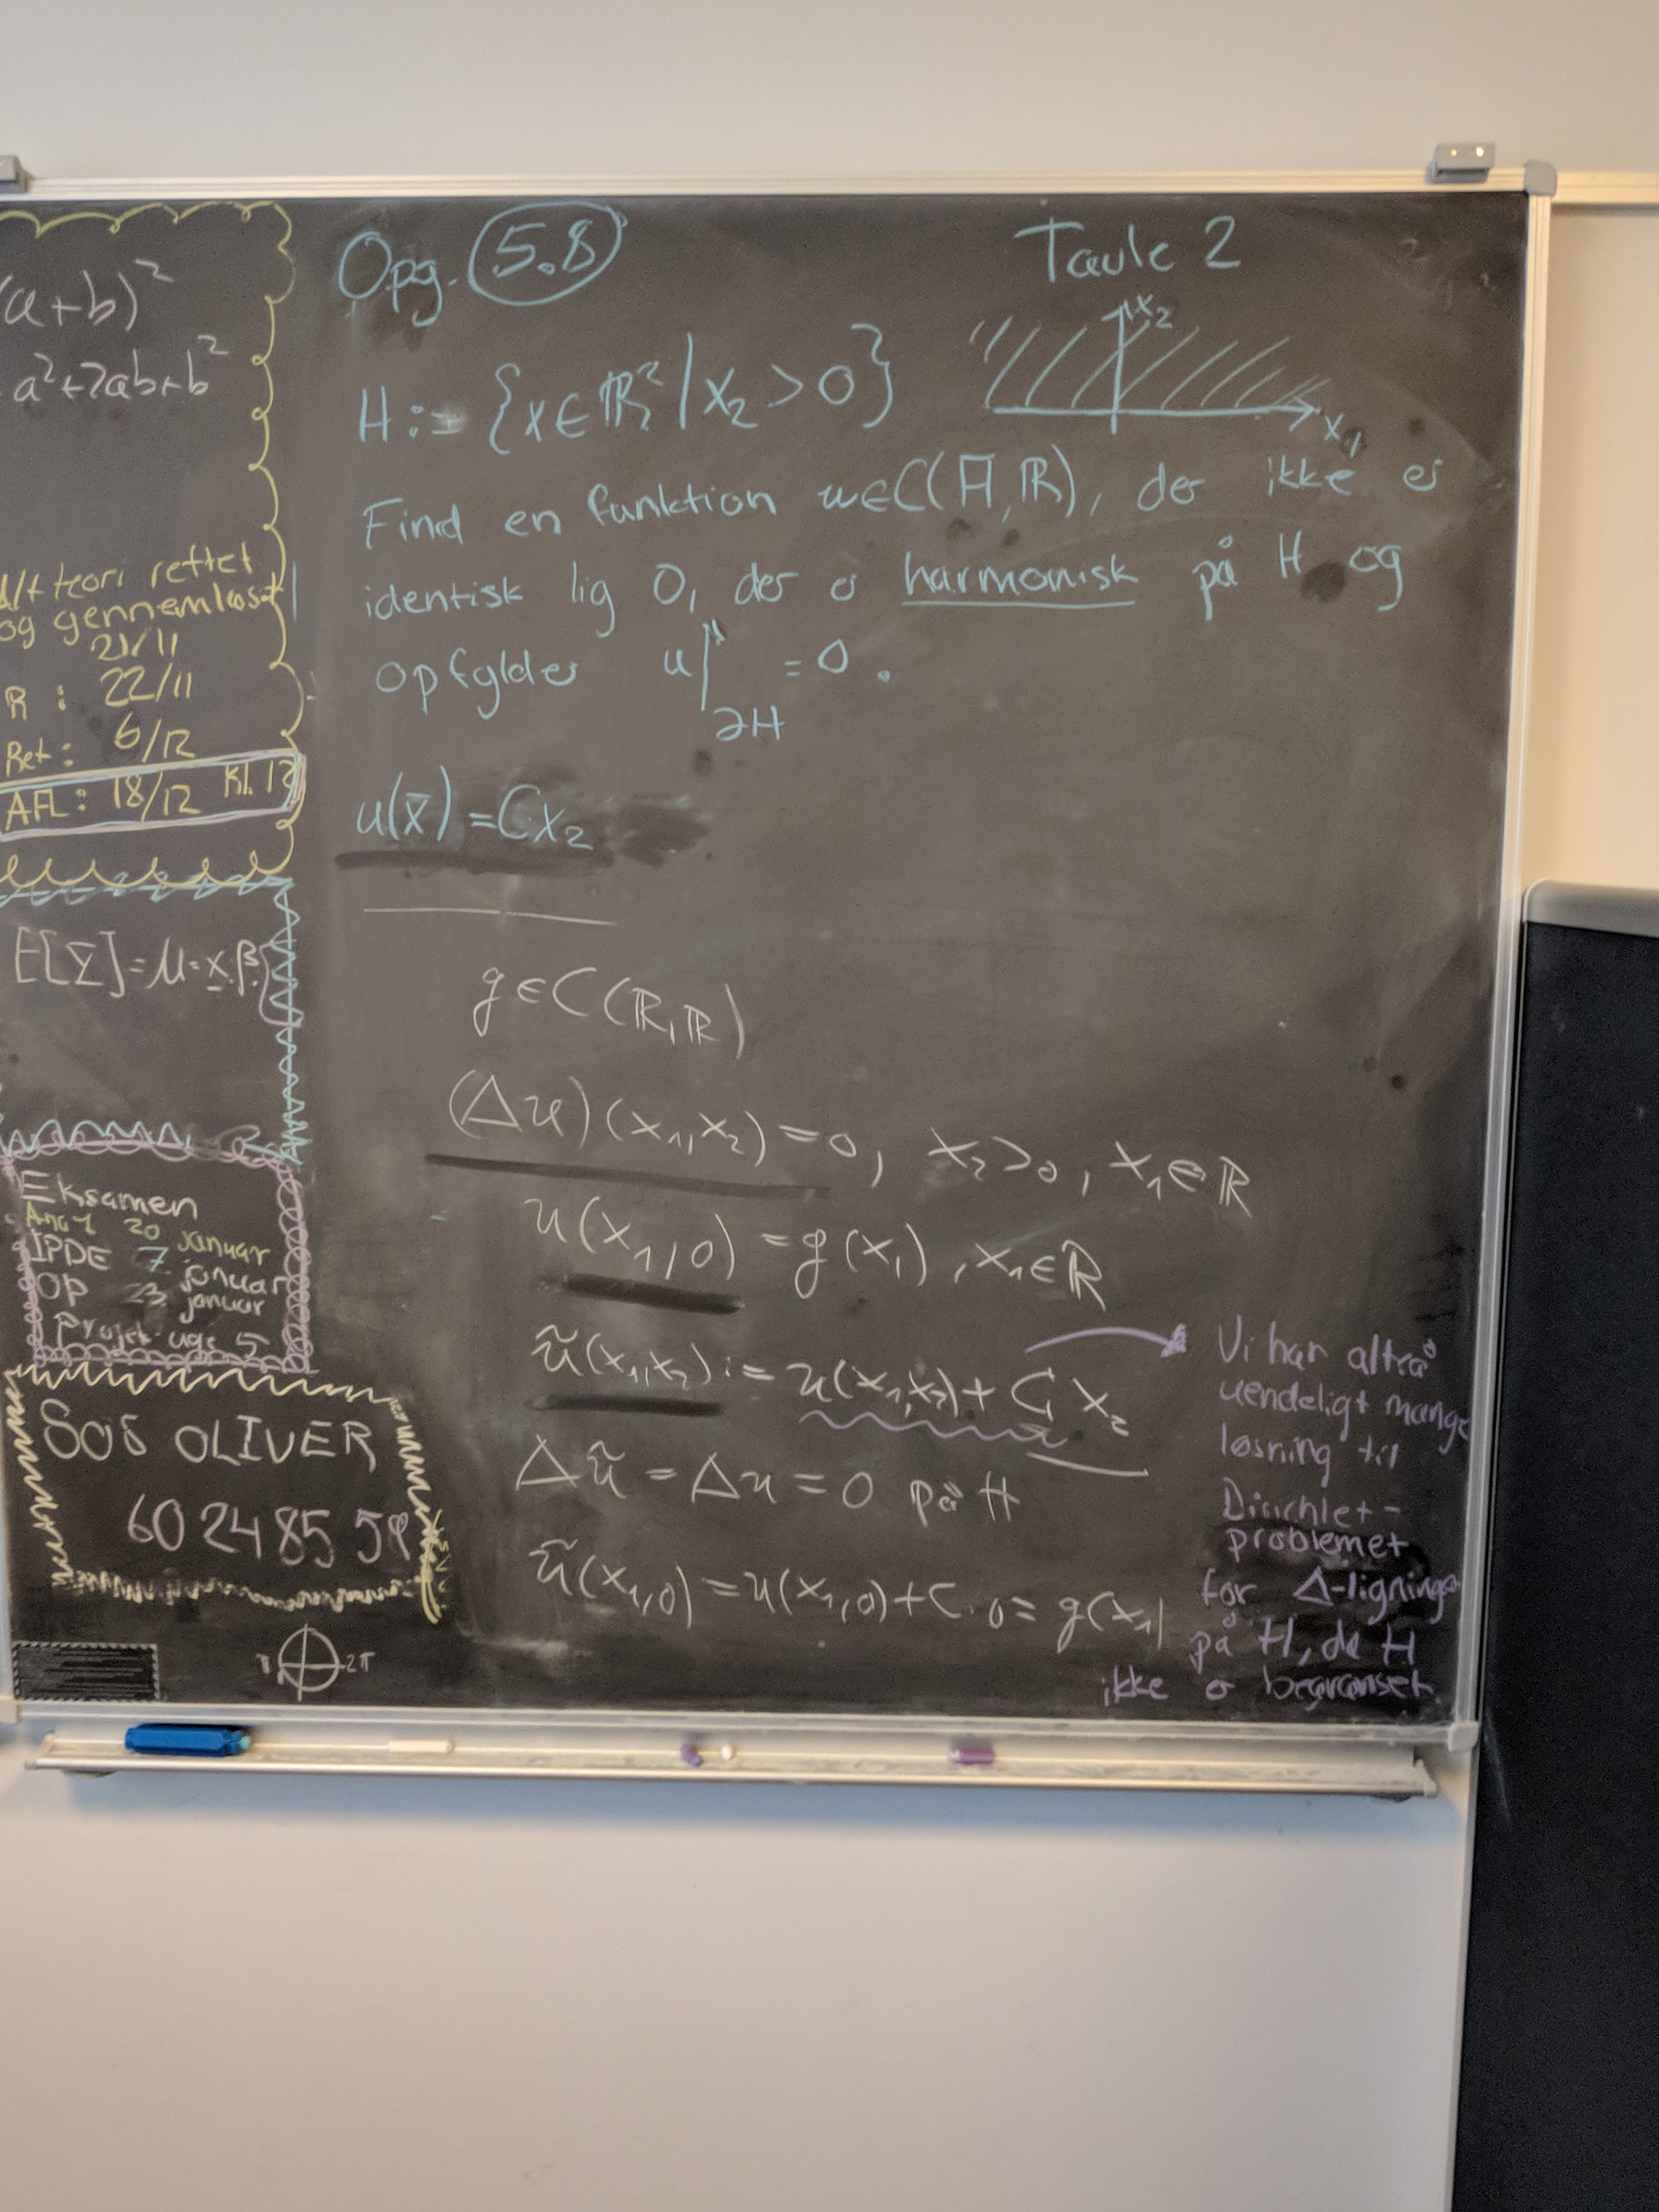 (a+b)²
a²+2ab+b²
Alt teori rettet
og gennemlæst
21/11
R : 22/11
Ret : 6/12
AFL : 18/12 Kl. 12
E[Y] = μ = x β
Eksamen
Anal 20 januar
IPDE 7 januar
OP 23 januar
Projekt uge 5
SOS OLIVER
60 24 85 58
π 2π
Opg. 5.8
Tavle 2
H := {x∈ℝ² | x₂ > 0}
x₂
x₁
Find en funktion u∈C(H̅,ℝ), der ikke er
identisk lig 0, der er harmonisk på H og
opfylder u|∂H = 0.
u(x̄) = Cx₂
g ∈ C(ℝ,ℝ)
(Δu)(x₁,x₂) = 0, x₂>0, x₁∈ℝ
u(x₁,0) = g(x₁), x₁∈ℝ
ũ(x₁,x₂) := u(x₁,x₂) + C x₂
Δũ = Δu = 0 på H
ũ(x₁,0) = u(x₁,0) + C·0 = g(x₁)
Vi har altså
uendeligt mange
løsning til
Dirichlet-
problemet
for Δ-ligninge
på H, da H
ikke er begrænset.